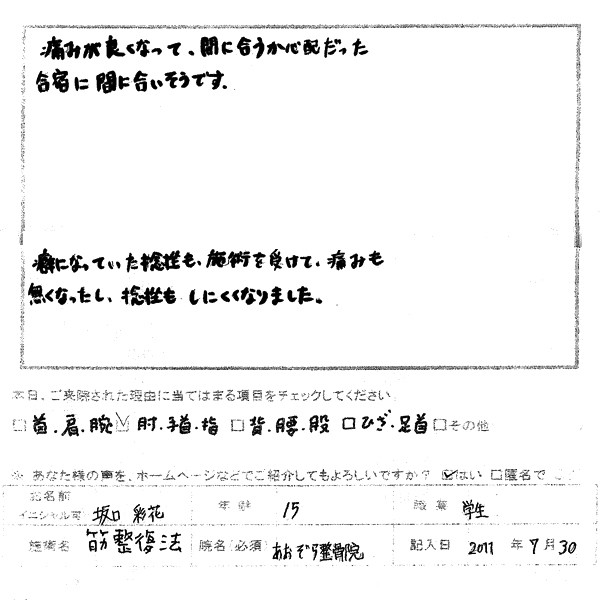 痛みが良くなって、間に合うか心配だった
合宿に間に合いそうです。
癖になっていた捻挫も、施術を受けて、痛みも
無くなったし、捻挫もしにくくなりました。
本日、ご来院された理由に当てはまる項目をチェックしてください
□首・肩・腕 ☑肘・手首・指 □背・腰・股 □ひざ・足首 □その他
※ あなた様の声を、ホームページなどでご紹介してもよろしいですか? ☑はい □匿名で
お名前 イニシャル可 坂口 彩花 年齢 15 職業 学生
施術名 筋整復法 院名(必須) あおぞら整骨院 記入日 2011 年 7 月 30